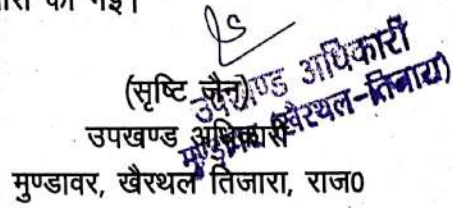 की गई।
(सृष्टि जैन)
उपखण्ड अधिकारी
मुण्डावर, खैरथल तिजारा, राज0
उपखण्ड अधिकारी
मुण्डावर (खैरथल-तिजारा)